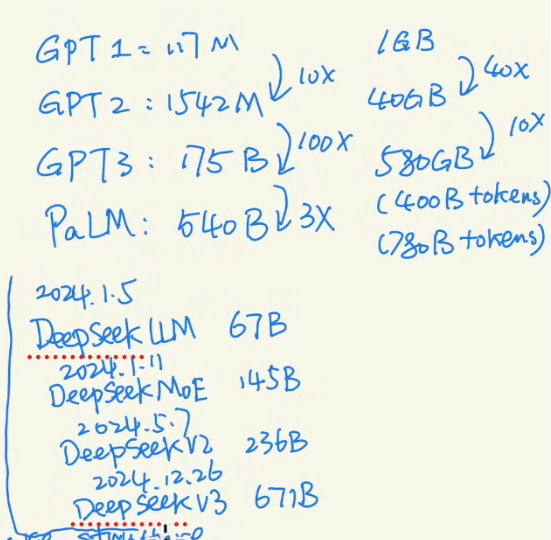 GPT 1 = 117 M 1GB
10X 40X
GPT 2 : 1542 M 40GB
100X 10X
GPT3 : 175 B 580GB
3X (400B tokens)
PaLM: 540B (780B tokens)
2024.1.5
DeepSeek LLM 67B
2024.1.11
DeepSeek MoE 145B
2024.5.7
DeepSeek V2 236B
2024.12.26
DeepSeek V3 671B